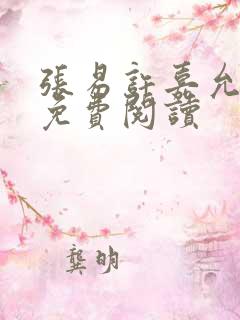 張易許嘉允
免費閱讀
龔明